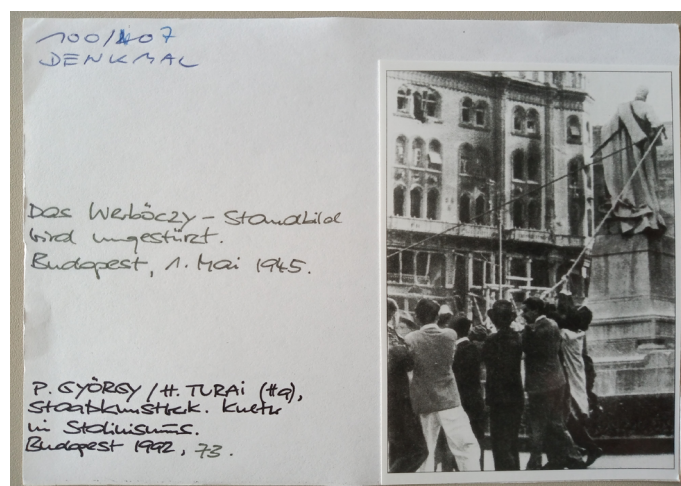 100/407
DENKMAL
Das Werböczy - Standbild
wird umgestürzt.
Budapest, 1. Mai 1945.
P. GYÖRGY / H. TURAI (Hg),
Staatskunstwerk. Kultur
im Stalinismus.
Budapest 1992, 73.